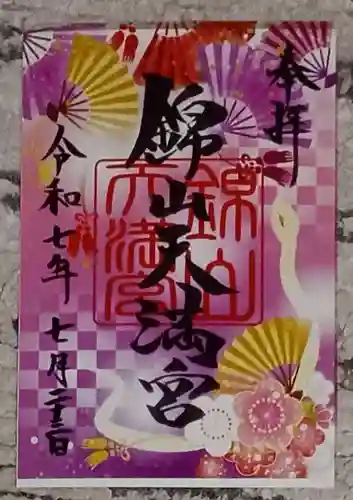 奉拝
錦山天満宮
錦山
天満宮
令和七年 七月二十三日